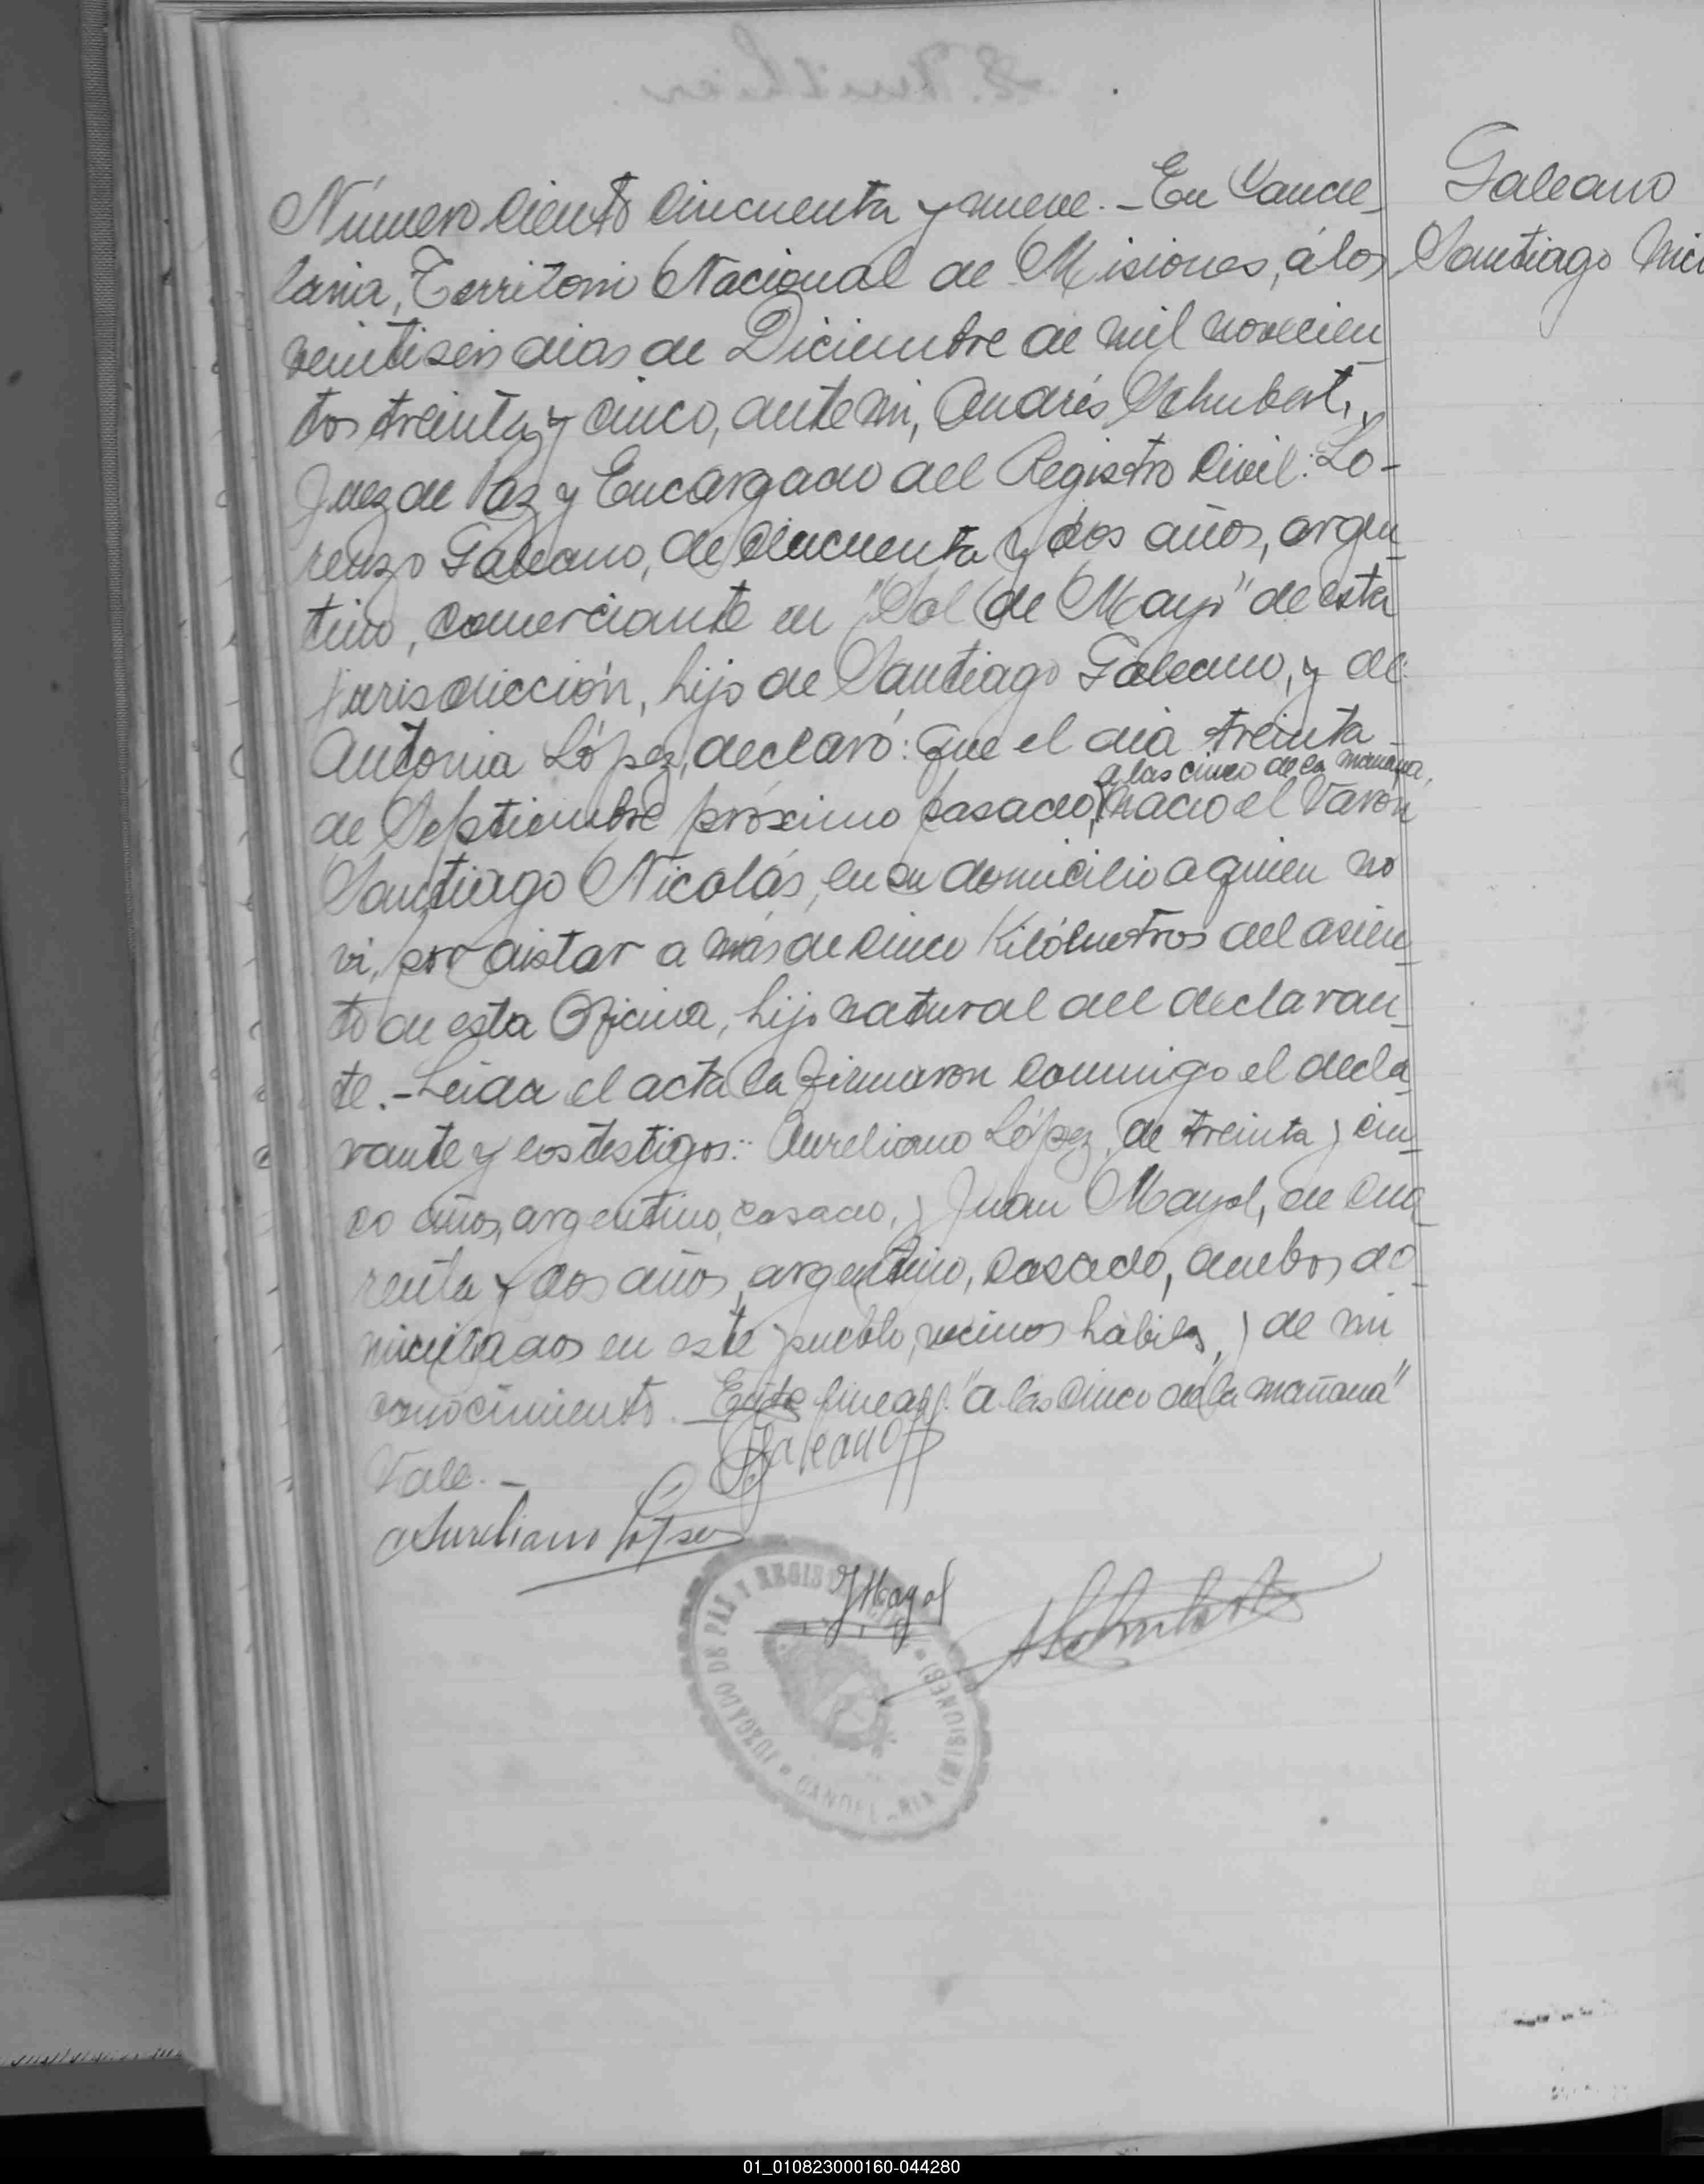 Número Ciento Cincuenta y nueve. - En Cande-
laria, Territorio Nacional de Misiones, á los
veintiseis dias de Diciembre de mil novecien
tos treinta y cinco, ante mi, Andrés Schubert,
Juez de Paz y Encargado del Registro Civil: Lo-
renzo Galeano, de cincuenta y dos años, argen-
tino, comerciante en "Sol de Mayo" de esta
jurisdicción, hijo de Santiago Galeano, y de
Antonia López, declaró: que el dia treinta
a las cinco de la mañana,
de Septiembre próximo pasado, nació el Varón
Santiago Nicolás, en su domicilio a quien no
vi, por distar a más de cinco Kilómetros del asien-
to de esta Oficina, hijo natural del declaran-
te. - Leida el acta la firmaron conmigo el decla-
rante y los testigos: Aureliano López, de treinta y cin-
co años, argentino, casado, y Juan Mayol, de cua-
renta y dos años, argentino, casado, ambos do-
miciliados en este pueblo, vecinos hábiles, y de mi
conocimiento. - lineas "a las cinco de la mañana"
Vale. -
Galeano
Aureliano López
JMayol
ASchubert
JUZGADO DE PAZ Y REGISTRO CIVIL * CANDELARIA (MISIONES) *
Galeano
Santiago Nico
01_010823000160-044280